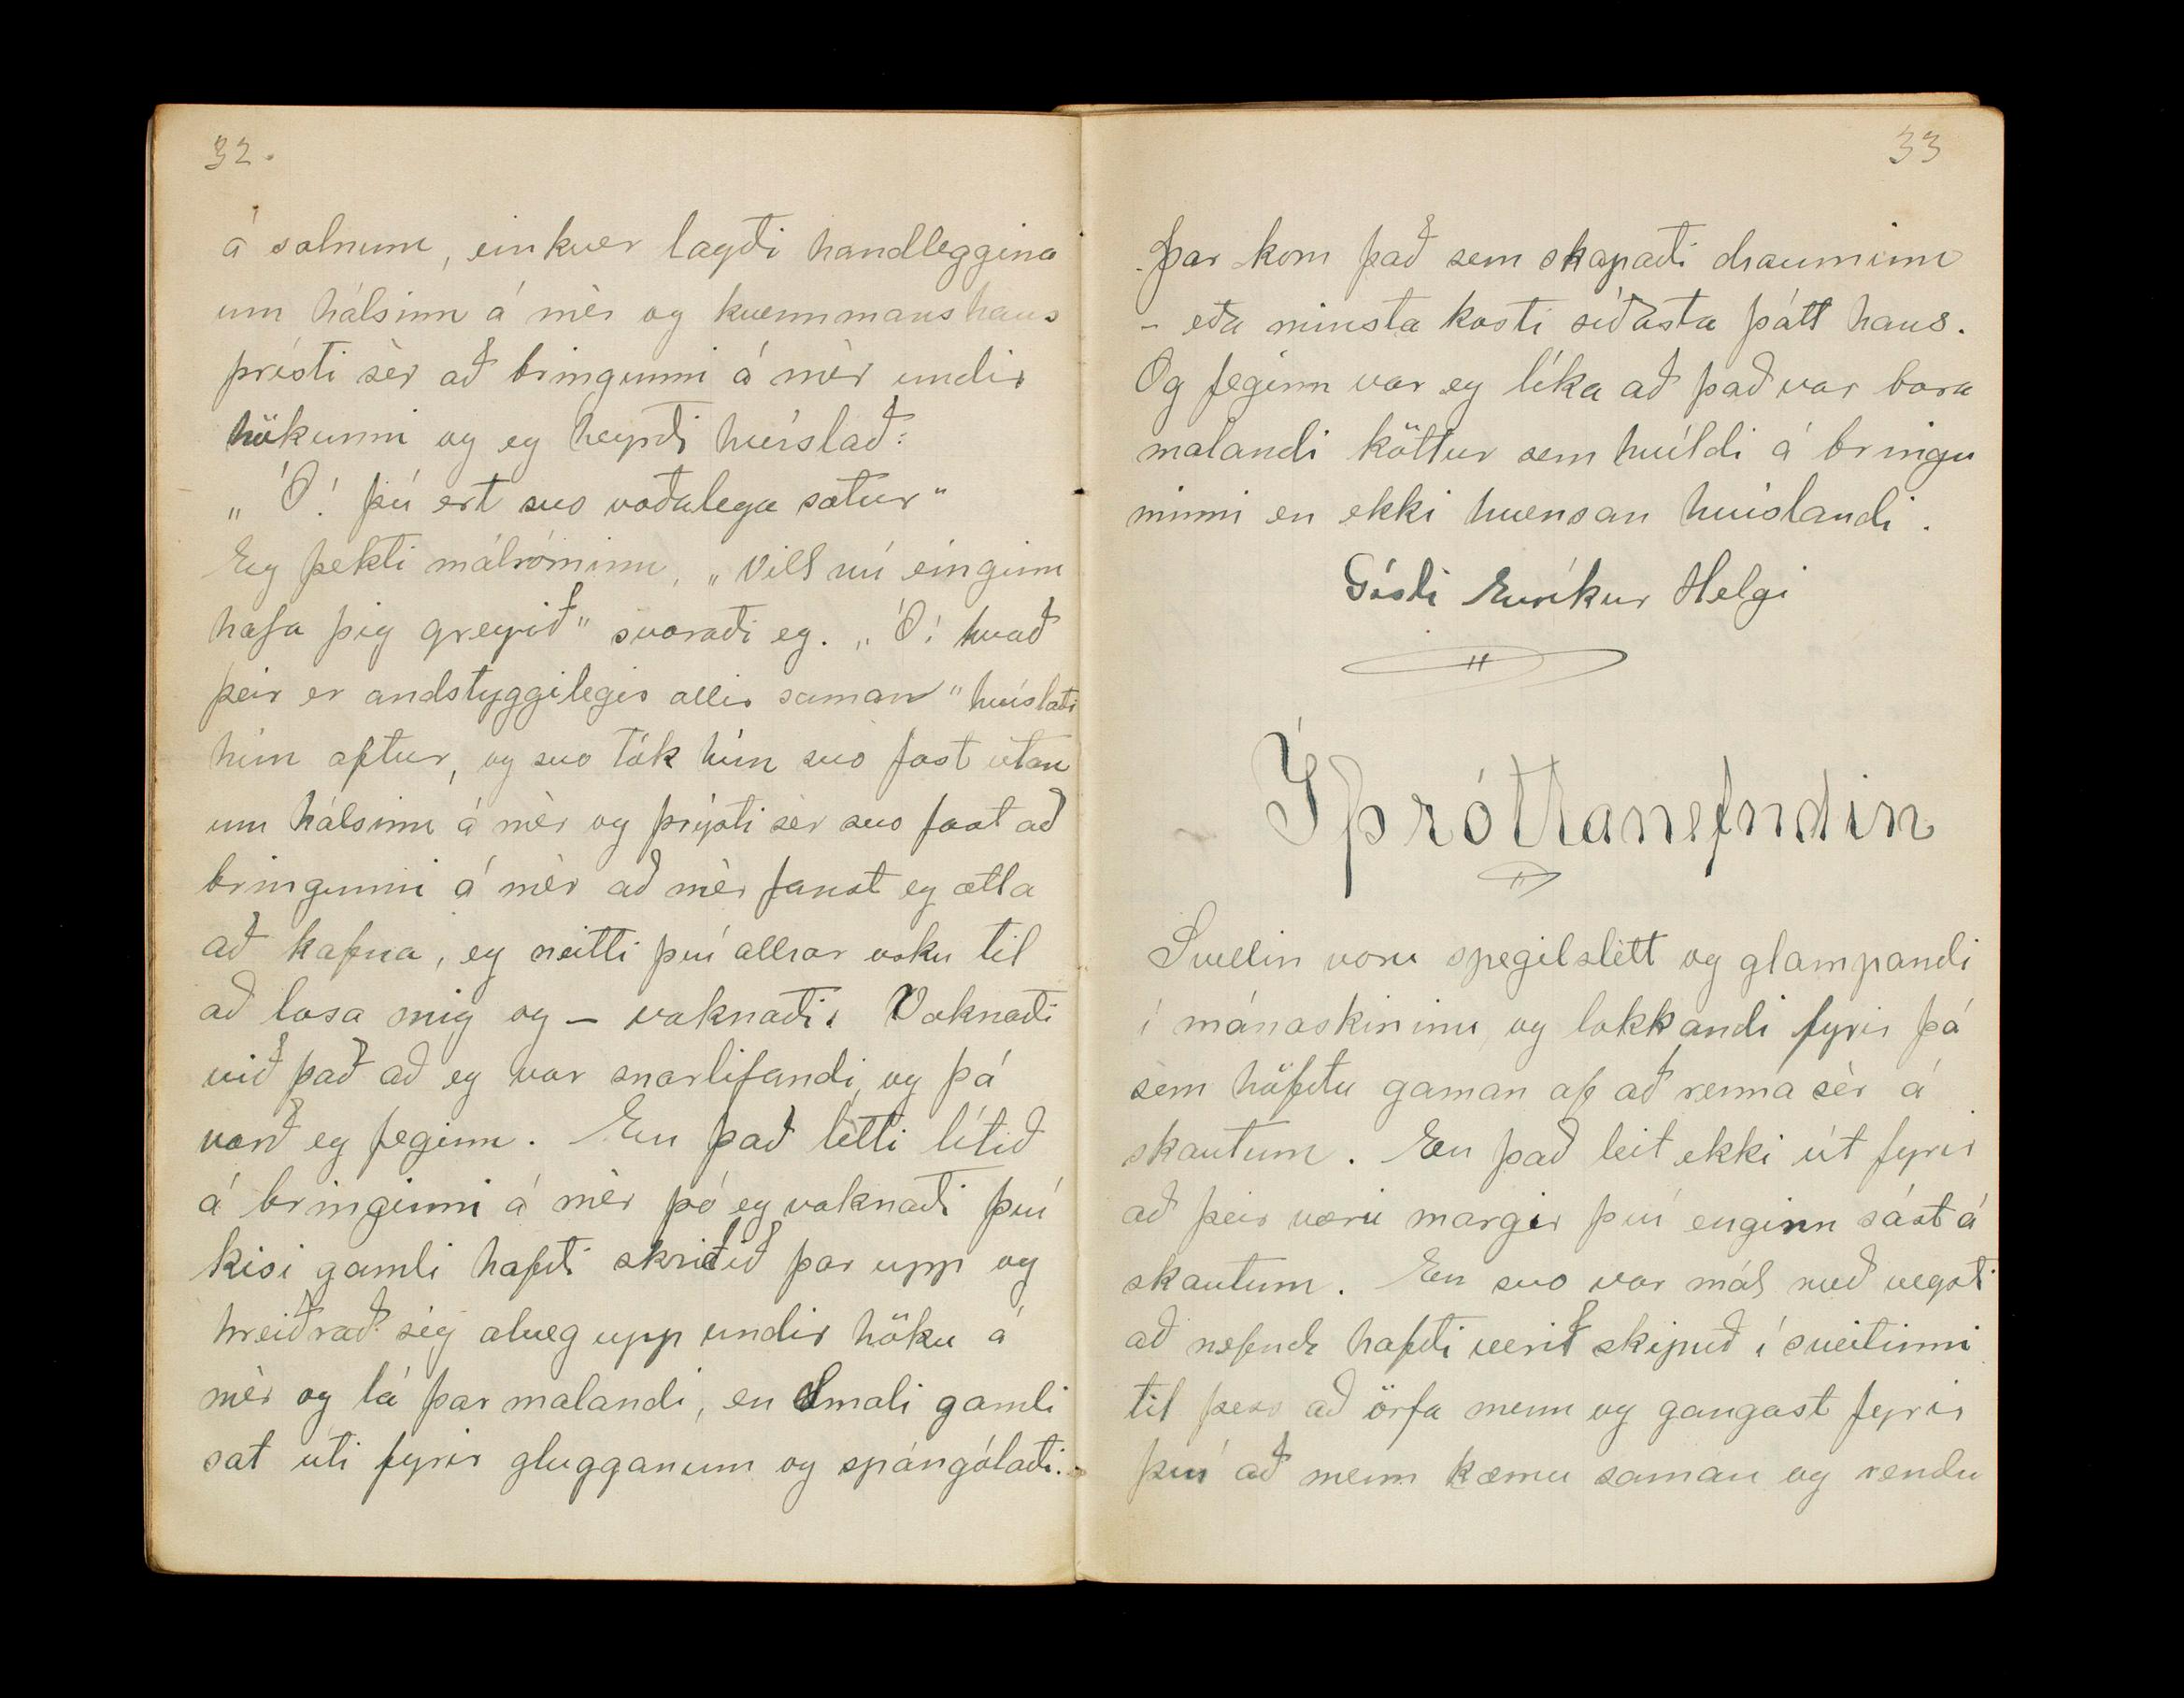 32.
á salnum, einkver lagði handleggina
um hálsinn á mèr og kvennmanshaus
þrísti sèr að bringunni á mèr undir
hökunni og eg heyrði hvíslað:
„Ó! þú ert svo voðalega sætur"
Eg þekti málróminn, „Vill nú einginn
hafa þig greyið" svaraði eg. „Ó! hvað
þeir er andstyggilegir allir saman" hvíslaði
hún aftur, og svo tók hún svo fast utan
um hálsinn á mèr og þrýsti sèr svo fast að
bringunni á mèr að mèr fanst eg ætla
að kafna, eg neitti því allrar orku til
að losa mig og – vaknaði. Vaknaði
við það að eg var snarlifandi, og þá
varð eg feginn. En það lètti lítið
á bringinni á mèr þó eg vaknaði því
kisi gamli hafði skriðið þar upp og
hreiðrað sig alveg upp undir höku á
mèr og lá þar malandi, en Smali gamli
sat úti fyrir glugganum og spángólaði.
33
Þar kom það sem skapaði drauminn
– eða minsta kosti síðasta þátt haus.
Og feginn var eg líka að það var bara
malandi köttur sem hvíldi á bringu
minni en ekki hvensan hvíslandi.
Gísli Eiríkur Helgi
Íþróttanefndin
Svellin voru spegilslètt og glampandi
í mánaskininu, og lokkandi fyrir þá
sem höfðu gaman af að renna sèr á
skautum. En það leit ekki út fyrir
að þeir væru margir því enginn sást á
skautum. En svo var mál með vegsti
að nefnd hafði verið skipuð í sveitinni
til þess að örfa menn og gangast fyrir
því að menn kæmu saman og rendu